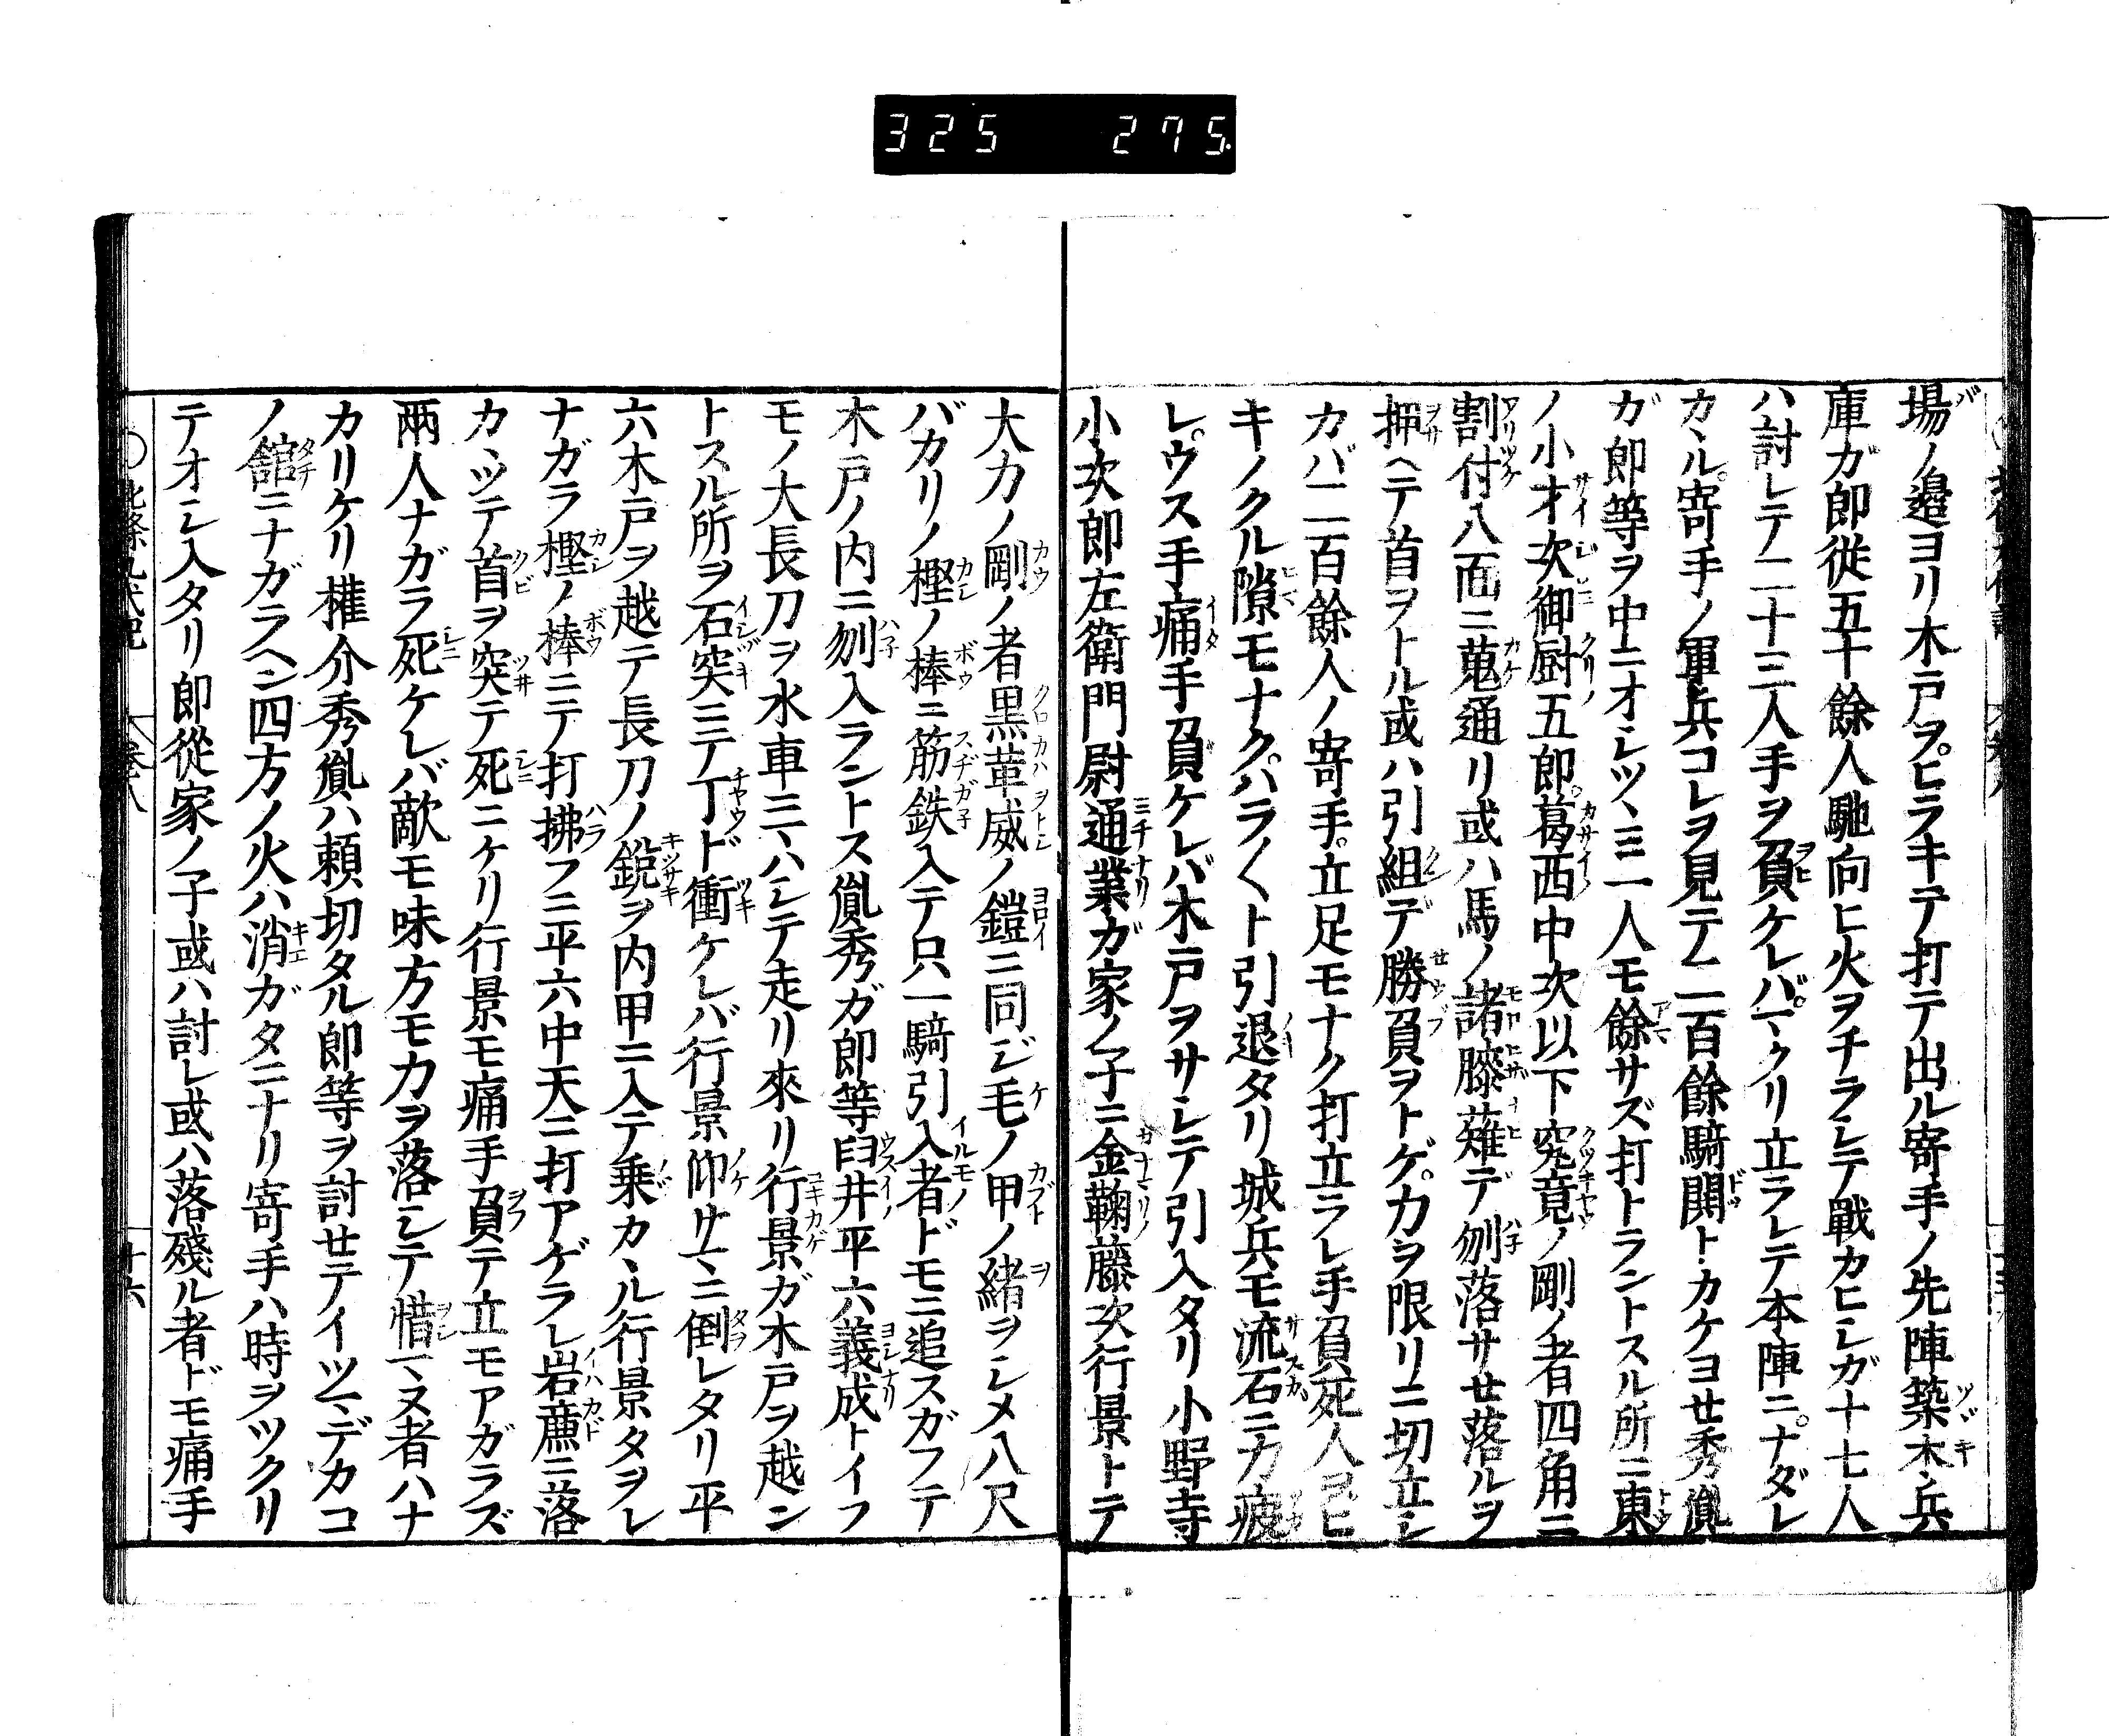 325 275
場ノ邉ヨリ木戸ヲヒラキテ打テ出ル寄手ノ先陣築木兵
庫ガ郎従五十餘人馳向ヒ火ヲチラシテ戰カヒシガ十七人
ハ討レテ二十三人手ヲ負ケレバマクリ立ラレテ本陣ニナダレ
カヽル寄手ノ軍兵コレヲ見テ一二百餘騎閧トカケヨせ秀胤
ガ郎等ヲ中ニオシツヽミ一人モ餘サズ打トラントスル所ニ東
ノ小才次御厨五郎葛西中次以下究竟ノ剛ノ者四角ニ
割付八面ニ蒐通リ或ハ馬ノ諸膝薙デ刎落サせ落ルヲ
押ヘテ首ヲトル或ハ引組デ勝負ヲトゲ力ヲ限リニ切立シ
カバ二百餘人ノ寄手立足モナク打立ラレ手負死人
キノクル隙モナクハラ〱ト引退タリ城兵モ流石ニ力疲
レウス手痛手負ケレバ木戸ヲサシテ引入タリ小野寺
小次郎左衛門尉通業ガ家ノ子ニ金鞠藤次行景トテ
大力ノ剛ノ者黒革威ノ鎧ニ同ジ毛ノ甲ノ緒ヲシメ八尺
バカリノ樫ノ棒ニ筋鉄入テ只一騎引入者ドモニ追スガフテ
木戸ノ内ニ刎入ラントス胤秀ガ郎等臼井平六義成トイフ
モノ大長刀ヲ水車ニマハシテ走リ來リ行景ガ木戸ヲ越ン
トスル所ヲ石突ニテ丁ド衝ケレバ行景仰サマニ倒レタリ平
六木戸ヲ越テ長刀ノ鋭ヲ内甲ニ入テ乗カヽル行景タヲレ
ナガラ樫ノ棒ニテ打拂フニ平六中天ニ打アゲラレ岩廉ニ落
カヽツテ首ヲ突テ死ニケリ行景モ痛手負テ立モアガラズ
兩人ナガラ死ケレバ敵モ味方モ力ヲ落シテ惜マヌ者ハナ
カリケリ権介秀胤ハ頼切タル郎等ヲ討せテイツマデカコ
ノ舘ニナガラヘン四方ノ火ハ消ガタニナリ寄手ハ時ヲツクリ
テオシ入タリ郎從家ノ子或ハ討レ或ハ落殘ル者ドモ痛手
〇北條九代記 巻八 十六